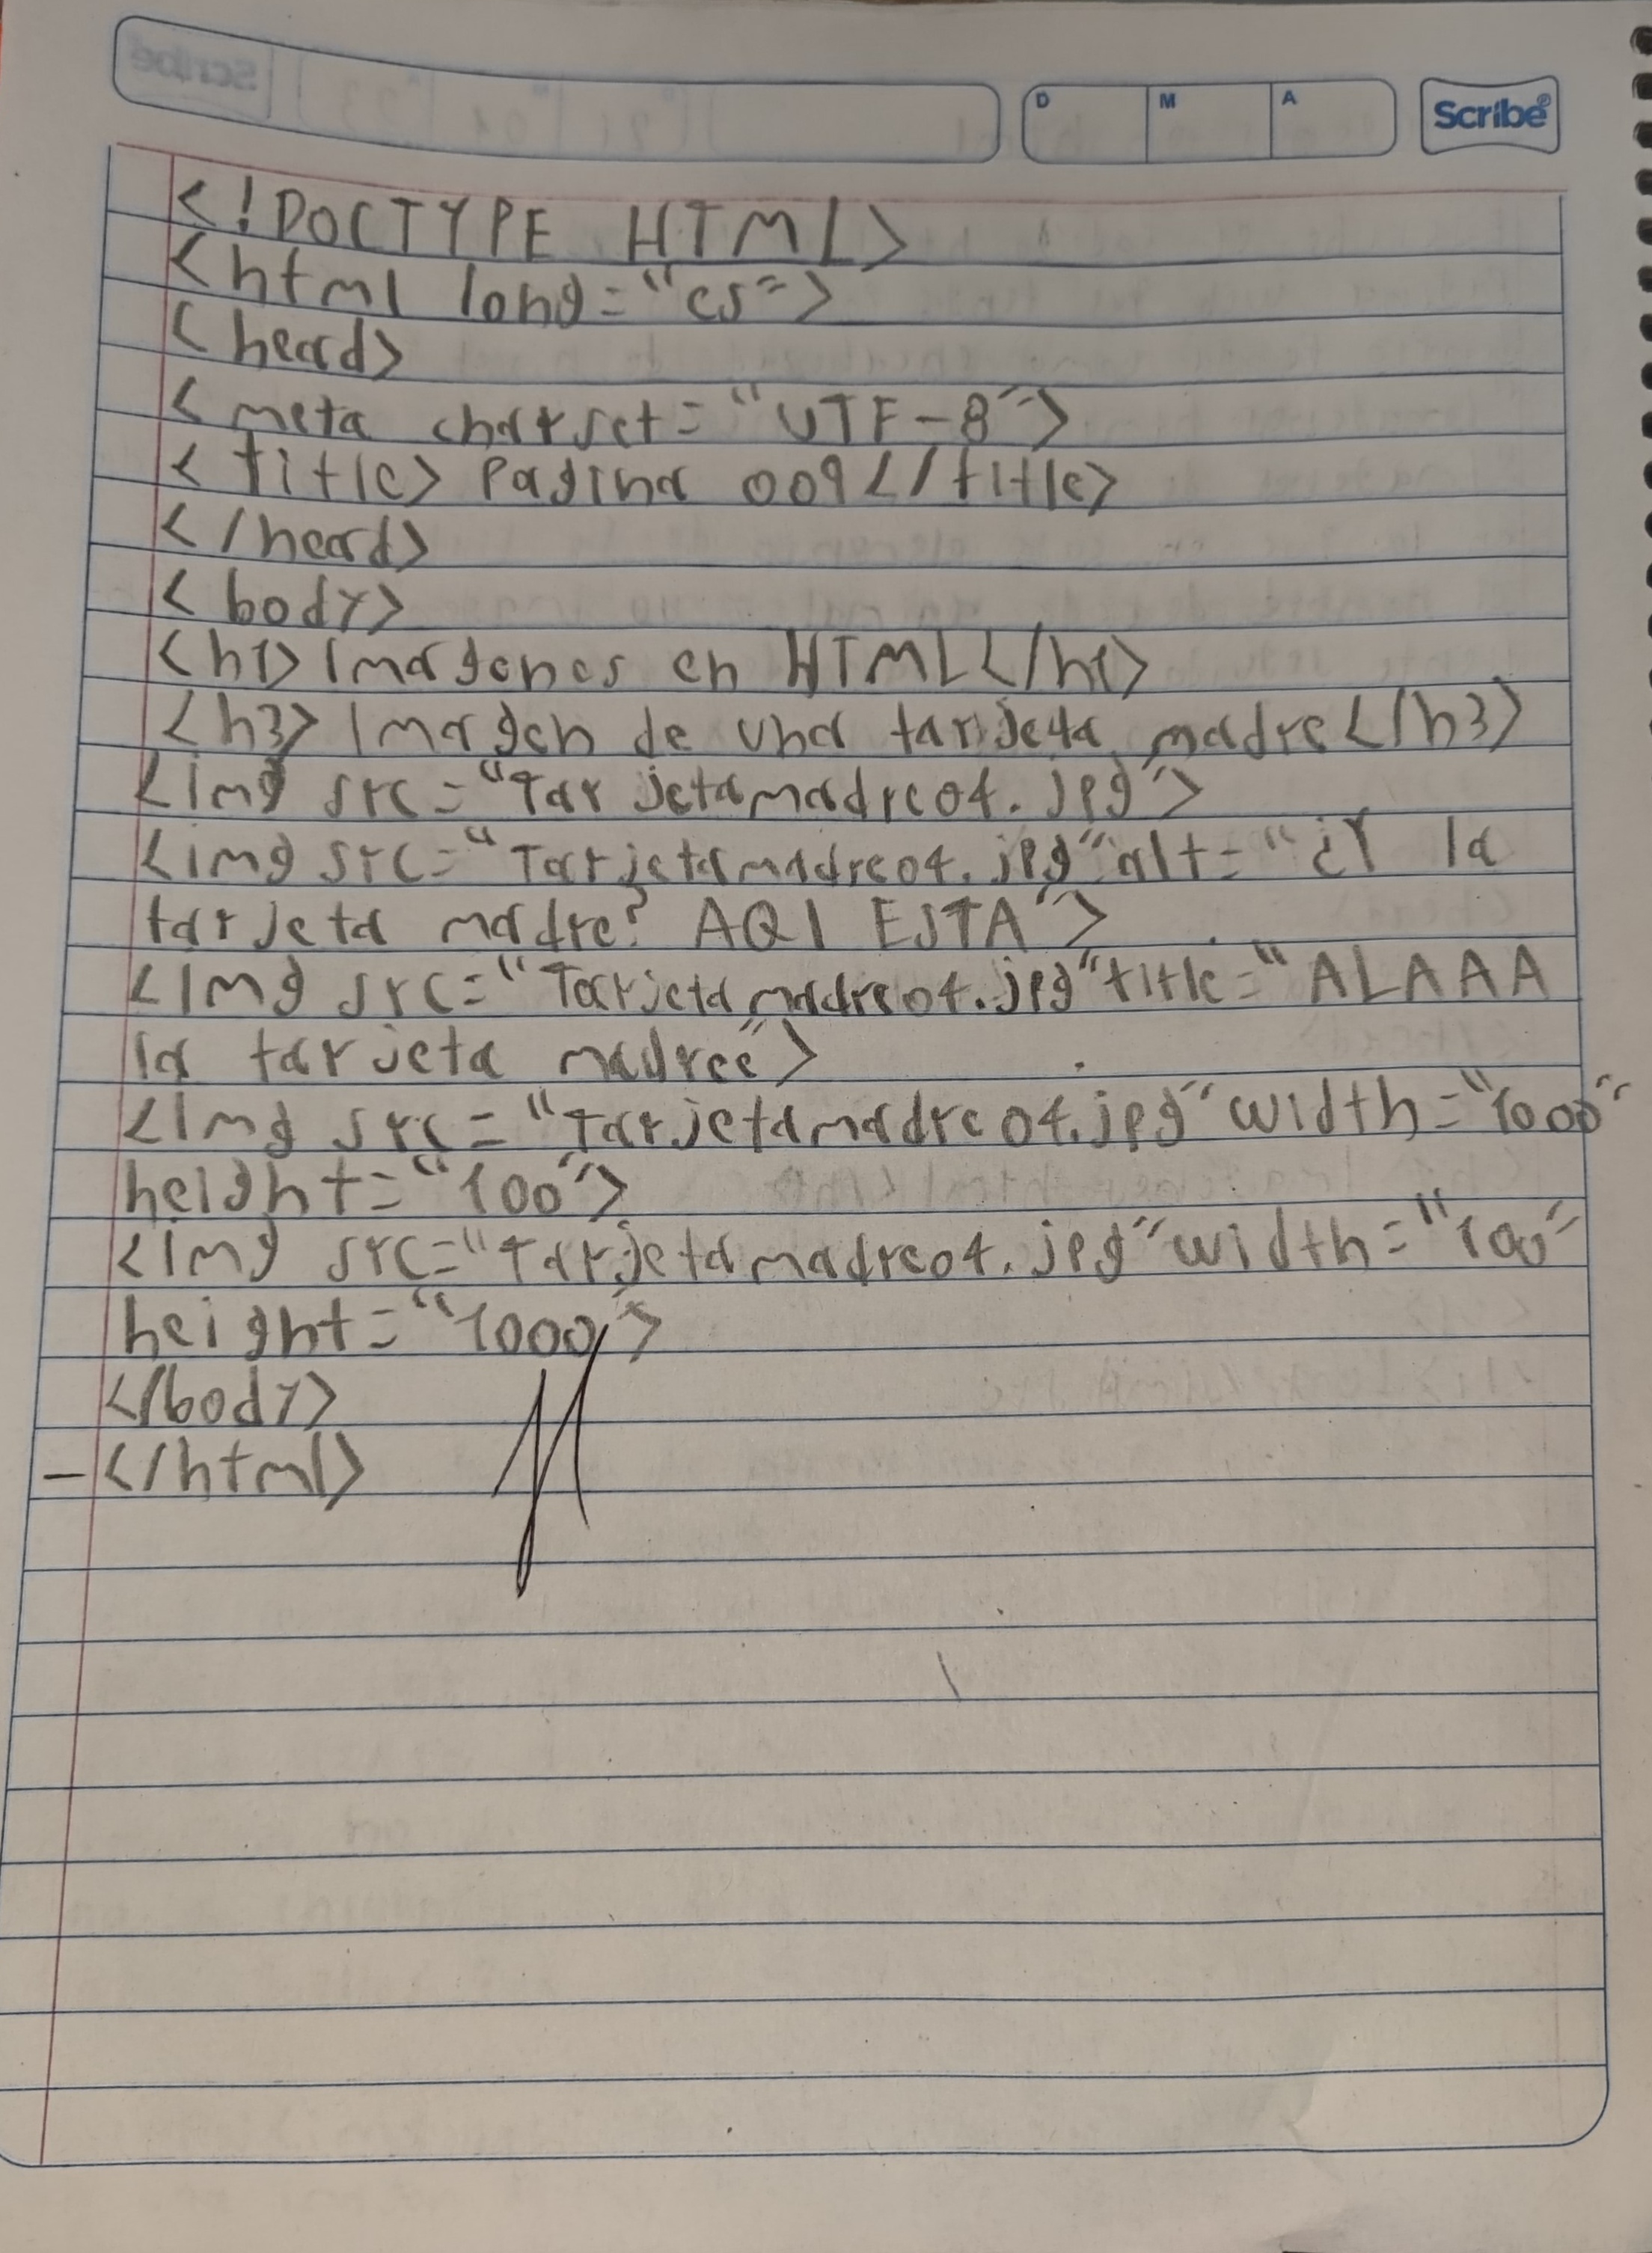 D M A Scribe®
<!DOCTYPE HTML>
<html lang="es">
<head>
<meta charset="UTF-8">
<title> Pagina 009</title>
</head>
<body>
<h1> Imagenes en HTML</h1>
<h3> Imagen de una tarjeta madre</h3>
<img src="Tarjetamadre04.jpg">
<img src="Tarjetamadre04.jpg" alt="¿Y la
tarjeta madre? AQI ESTA">
<img src="Tarjetamadre04.jpg" title="ALAAA
la tarjeta madree">
<img src="Tarjetamadre04.jpg" width="1000"
height="100">
<img src="Tarjetamadre04.jpg" width="100"
height="1000">
</body>
-</html>